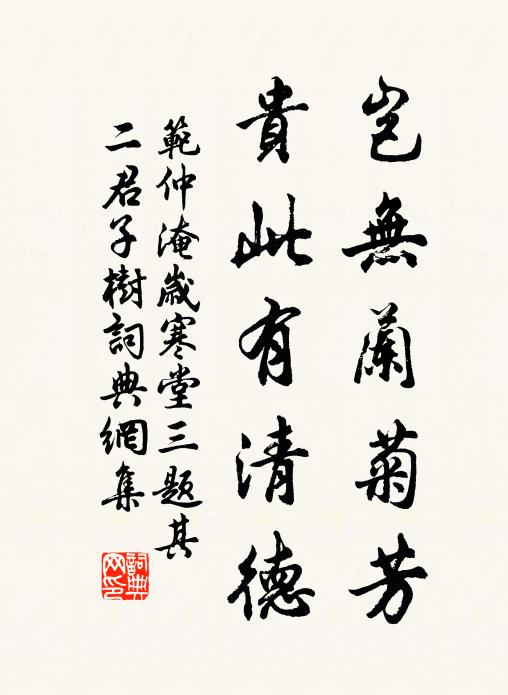 豈無蘭菊芳
貴此有清德
範仲淹歲寒堂三題其
二君子樹詞典網集
詞典
网印